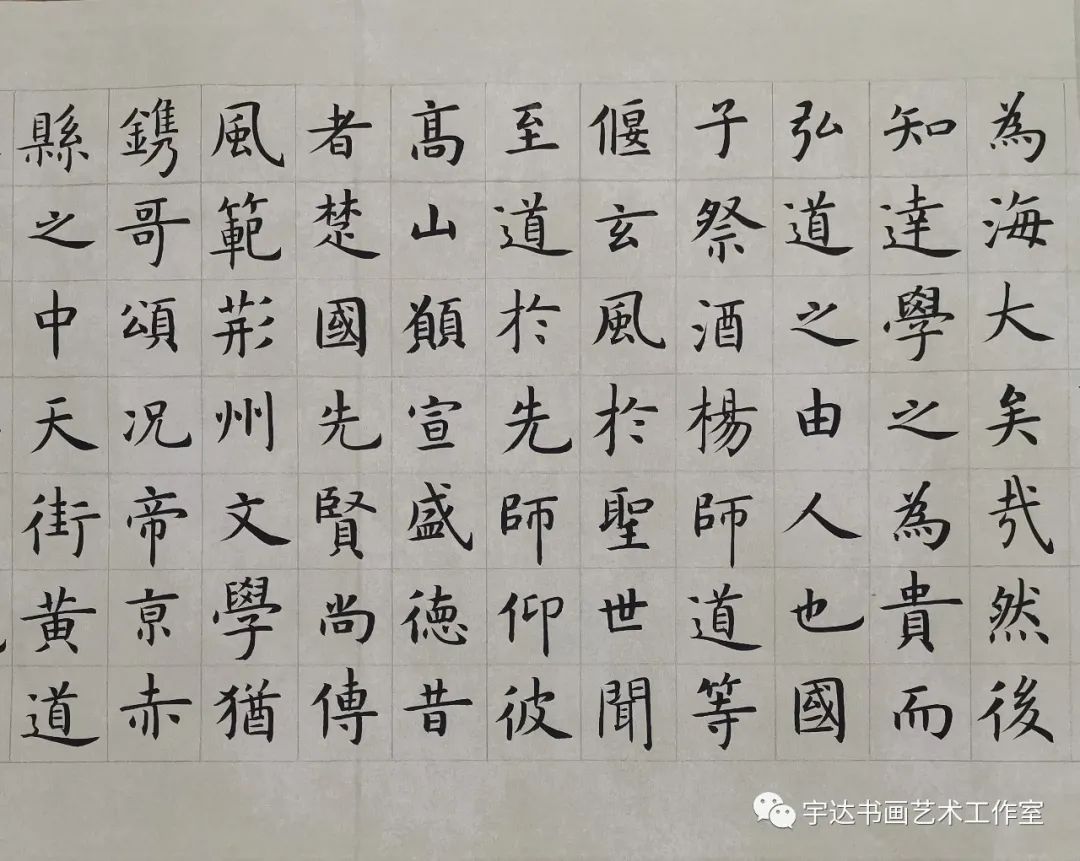 為海大矣哉然後
知達學之為貴而
弘道之由人也國
子祭酒楊師道等
偃玄風於聖世聞
至道於先師仰彼
高山願宣盛德昔
者楚國先賢尚傳
風範荊州文學猶
鐫哥頌況帝京赤
縣之中天街黃道
宇达书画艺术工作室